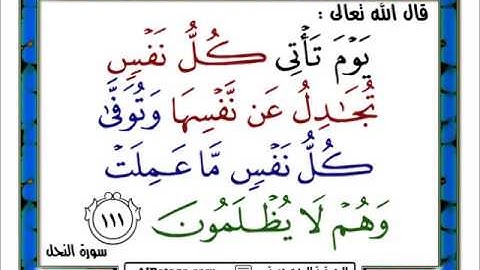 قال الله تعالى :
يَوْمَ تَأْتِى كُلُّ نَفْسٍ
تُجَـٰدِلُ عَن نَّفْسِهَا وَتُوَفَّىٰ
كُلُّ نَفْسٍ مَّا عَمِلَتْ
وَهُمْ لَا يُظْلَمُونَ ١١١
سورة النحل